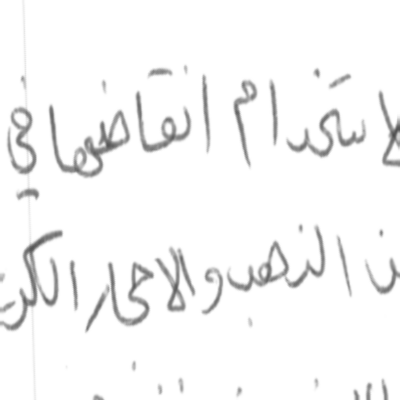 لاستخدام انقاضها في
من الذهب والاحجار الكر